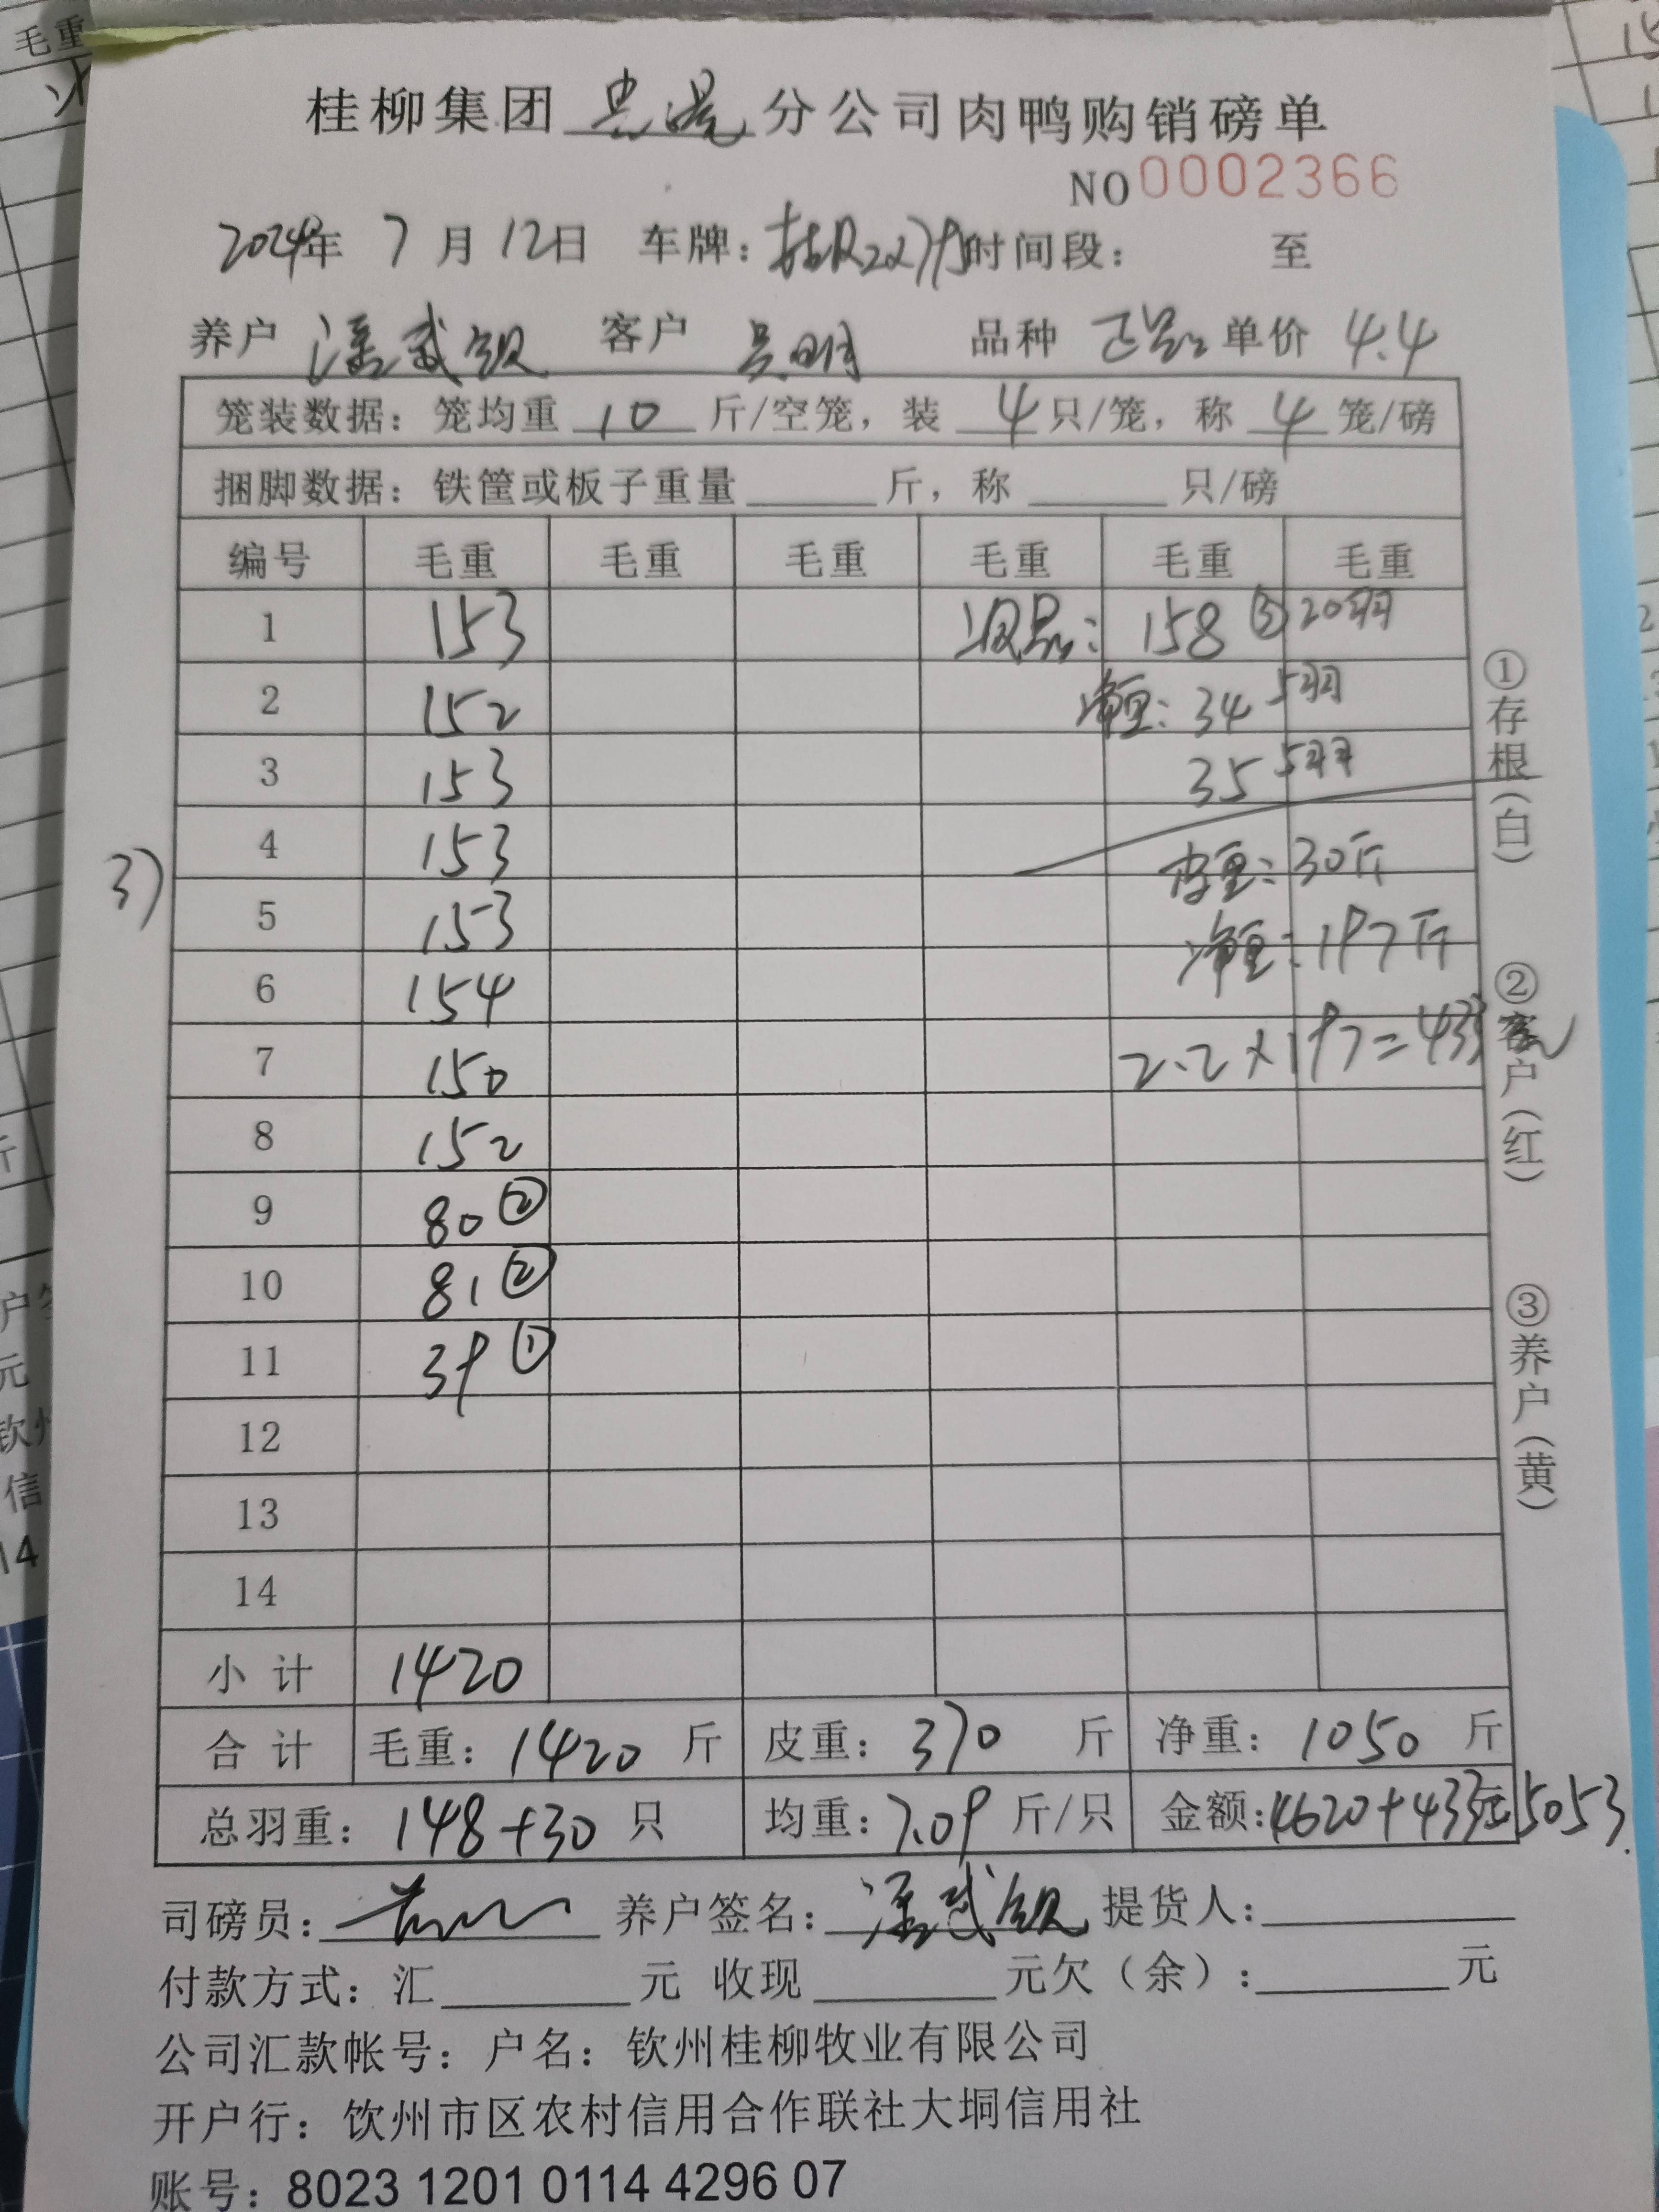 桂柳集团 分公司肉鸭购销磅单
NO 0002366
2024年 7月12日 车牌: 时间段: 至
养户 潘武钦 客户 吴明 品种 正品 单价 4.4
笼装数据: 笼均重 10 斤/空笼, 装 4 只/笼, 称 4 笼/磅
捆脚数据: 铁筐或板子重量 斤, 称 只/磅
编号 毛重 毛重 毛重 毛重 毛重 毛重
1 153 次品: 158 ③ 20羽
2 152 净重: 34 5羽
3 153 35 5羽
4 153 皮重: 30斤
3)
5 153 净重: 197斤
6 154
7 150 2.2×197=433元
8 152
9 80 ②
10 81 ②
11 39 ①
12
13
14
小计 1420
合计 毛重: 1420 斤 皮重: 370 斤 净重: 1050 斤
总羽重: 148+30 只 均重: 7.09 斤/只 金额: 4620+433元 5053.
①存根(白)
②客户(红)
③养户(黄)
司磅员: 养户签名: 潘武钦 提货人:
付款方式: 汇 元 收现 元欠(余): 元
公司汇款帐号: 户名: 钦州桂柳牧业有限公司
开户行: 饮州市区农村信用合作联社大垌信用社
账号: 8023 1201 0114 4296 07